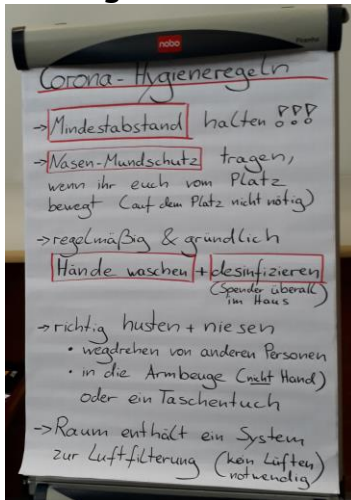 nobo
Corona-Hygieneregeln
→Mindestabstand halten !!!
→Nasen-Mundschutz tragen,
wenn ihr euch vom Platz
bewegt (auf dem Platz nicht nötig)
→regelmäßig & gründlich
Hände waschen + desinfizieren
(Spender überall
im Haus)
→richtig husten + niesen
• wegdrehen von anderen Personen
• in die Armbeuge (nicht Hand)
oder ein Taschentuch
→Raum enthält ein System
zur Luftfilterung (kein Lüften
notwendig)